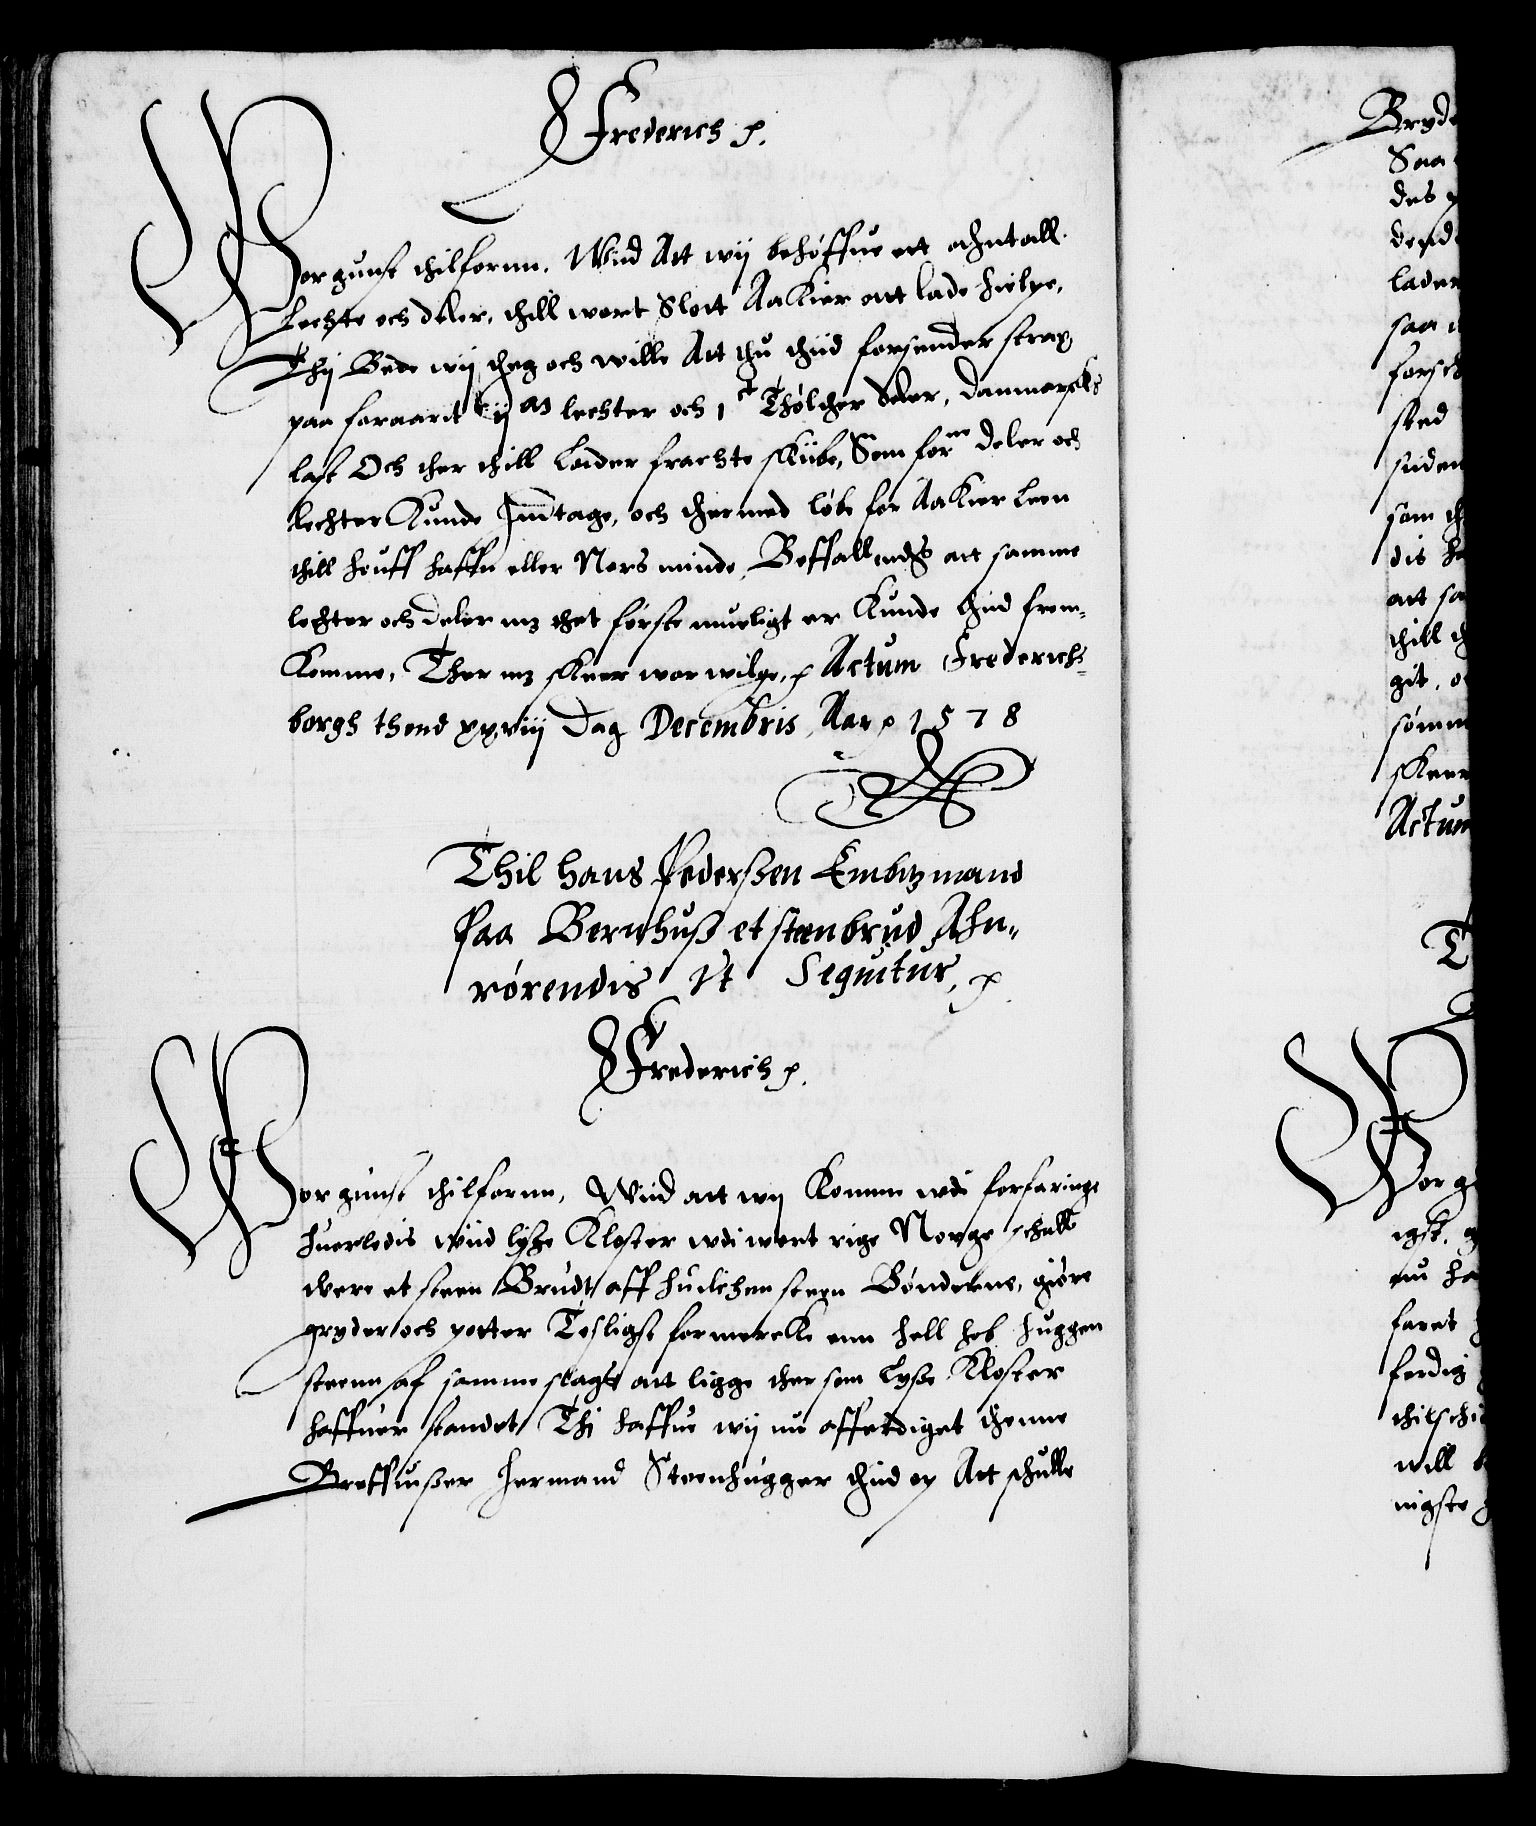 Frederich p.
Wor gunst thilfornn. Wiid Att wij behøffue ett Anntall
lechte och deler, thill wort Slott Aakier att lade hielpe,
Thij Bede wij theg och wille Att thu thiid forsender strax
paa foraarit ij m lechter och 1 c Thølther Deler, Danmarcks
last Och ther thill lader frachte skiibe, Som for ne deler och
lechter Kunde Jnndtage, och thermed løbe for Aakier leen
thill Houff haffn eller Nors minde, Beffallendis att samme
lechter och deler mz thet første mueligt er Kunde hiid frem-
Komme, Ther mz skeer wor wilge, p Actum Frederichs-
borgh thend xxviij Dag Decembris, Aar p 1578
Thil Hans Pederßen Embitzmand
Paa Bernhuß et steenbrud Ahn-
rørendis Vt Sequitur, p
Frederich p.
Wor gunst thilfornn, Wiid att wij Komme udi forfaringe
huerledis wiid lyße Kloster udi wort rige Norge schall
were et steen Brudt aff huilchen steen Bønderne, giøre
gryder och potter Tesligst formercke enn hell hob huggen
steenn af samme slags att ligge ther som Lyße Kloster
haffuer standet Thi haffue wij nu afferdiget thenne
Breffuißer Hermand Steenhugger thiid op Att schulle
Bryde
Saa
des
lader
saa
forsch
sted
siden
som
dis
att
thill
git
sømm
skeer
Actum
Wor g
faret
ferdig
will
nigste